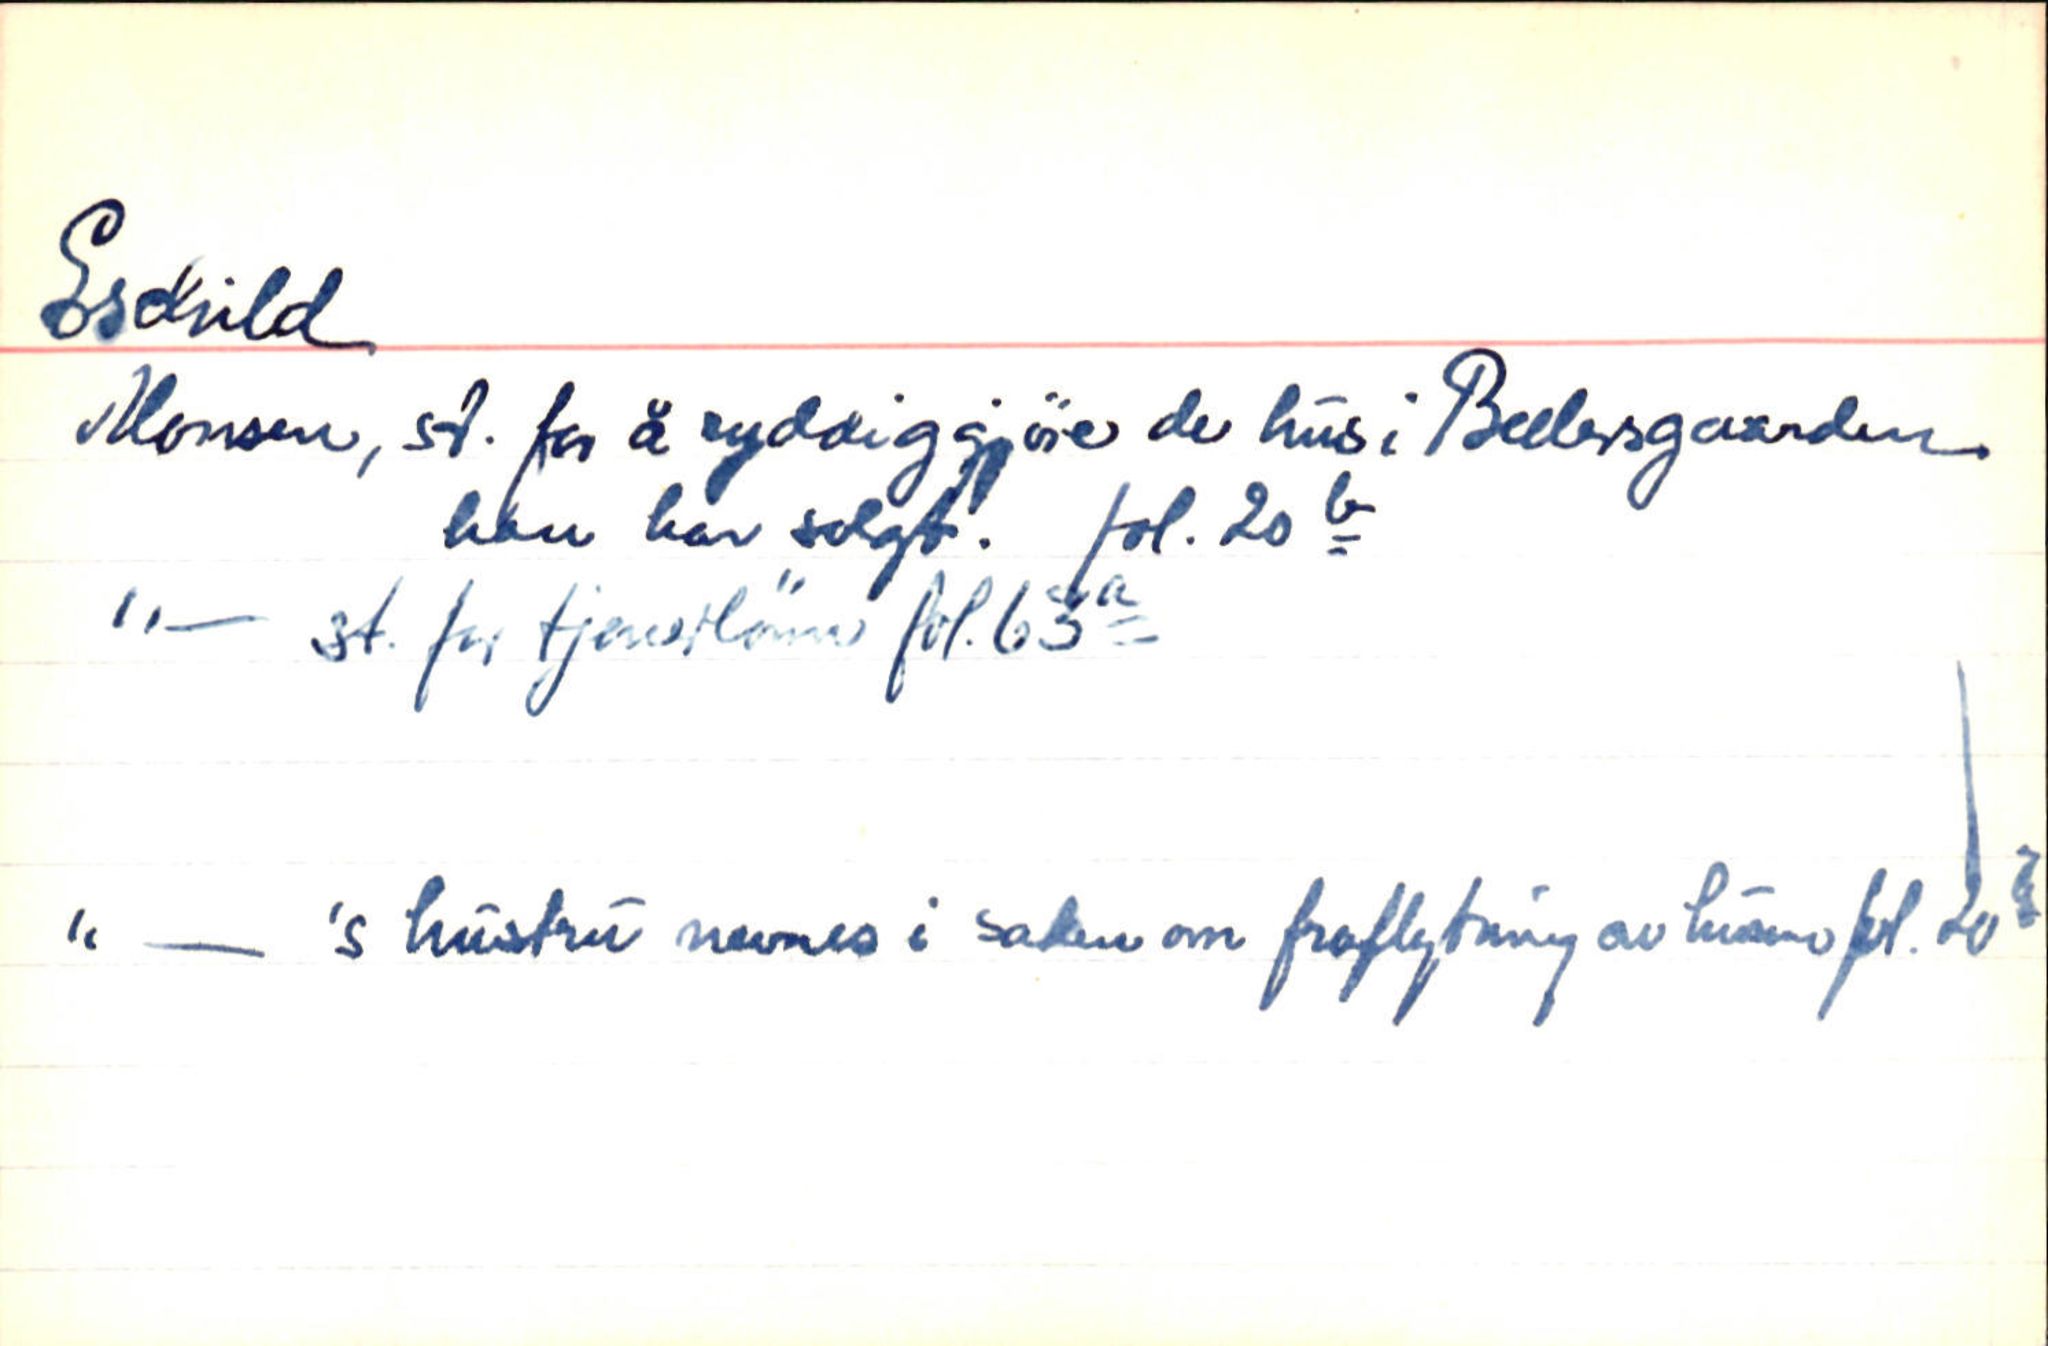 Eskild
Monsen, st. for å ryddiggjöre de hus i Beelersgaarden
han har solgt. fol. 20 b
"— st. for tjenerlönn fol. 63 a
" — 's hustru nevnes i saken om fraflytning av husene fol. 20